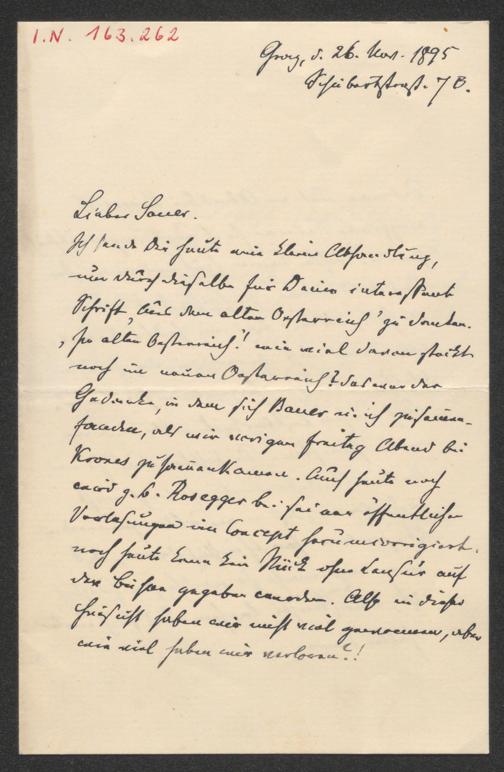 I.N. 163.262
Graz, d. 26. Nov. 1895
Schubertstraß. 7 B.
Lieber Sauer.
Ich sende Dir heute eine kleine Abhandlung,
um durch dieselbe für Deine interessante
Schrift „Aus dem alten Oesterreich“ zu danken.
„Im alten Oesterreich“! wie viel davon steckt
noch im neuen Oesterreich? das war der
Gedanke, in dem sich Bauer u. ich zusammen-
fanden, als wir vorigen Freitag Abend bei
Krones zusammenkamen. Auch heute noch
wird z. B. Rosegger bei seinen öffentlichen
Vorlesungen im Concept herumcorrigiert.
noch heute kann kein Stück ohne Censur auf
der Bühne gegeben werden. Also in dieser
Hinsicht haben wir nicht viel gewonnen, aber
wie viel haben wir verloren?!